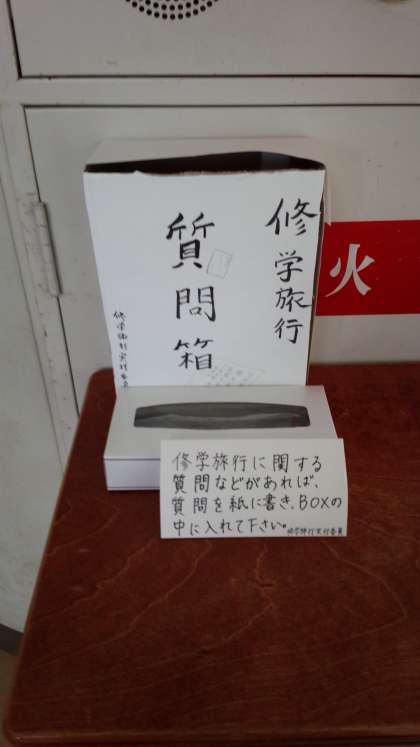 修学旅行
質問箱
修学旅行実行委員
火
修学旅行に関する
質問などがあれば、
質問を紙に書き、BOXの
中に入れて下さい。
修学旅行実行委員